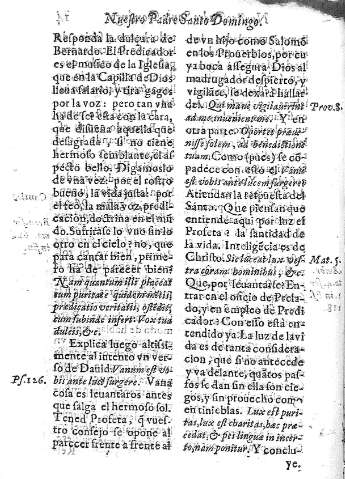 Nuestro Padre Santo Domingo.
Responda la dulçura de
Bernardo. El Predicador
es el musico de la Iglesia,
que en la Capilla de Dios
lleua salario, y tira gages
por la voz: pero tan vna
ha de ser esta con la cara,
que disuena aquella que
desagrada, si no tiene
hermoso semblante, el as
pecto bello. Digamoslo
de vna vez: por el rostro
bueno, la vida justa: por
el feo, la mala voz, predi
cacion, doctrina en el mũ
do. Sufrirase lo vno sin lo
otro en el cielo: no, que
para cantar bien, prime
ro ha de parecer bien:
Nam quantum illi placeat
tum puritate quidem
prædicatio veritatis, ostẽdit,
cum subinde infert: Vox tua
dulcis, &c.
Explica luego altissi
mamente al intento vn ver
so de Dauid. Vanum est vo
bis ante lucẽ surgere. Vana
Ps. 126.
cosa es leuantaros antes
que salga el hermoso sol.
Tened Profeta, q̃ vues
tro consejo se opone al
parecer frente a frente al
de vn hijo como Salomõ
en los Prouerbios, por cu
ya boca assegura Dios al
madrugador despierto, y
vigilãte, se dexará hallar
del. Qui mane vigilauerint
Prov. 8.
ad me, inuenient me. Y en
otra parte. Oportet præue
nisse solem, ad benedictionẽ
tuam. Como (pues) se cõ
padece con esto el Vanũ
est vobis ante lucem surgere?
Atiendan la respuesta del
Santo. Que piensan que
entiende aqui por luz el
Profeta? la santidad de
la vida. Inteligẽcia es de
Christo. Sic luceat lux ves
Mat. 5.
tra coram hominibus, &c.
Que, por leuantarse? En-
trar en el oficio de Prela-
do, y en empleo de Predi
cador? Con esso está en-
tendido ya. La luz de la vi
da es de tanta considera-
cion, que si no antecede
y va delante, quãtos pas-
sos se dan sin ella son cie-
gos, y sin prouecho como
en tinieblas. Lux est puri-
tas, lux est charitas, hæc præ
cedat, & per lingua in incep-
to, nam ponitur. Y conclu-
ye.